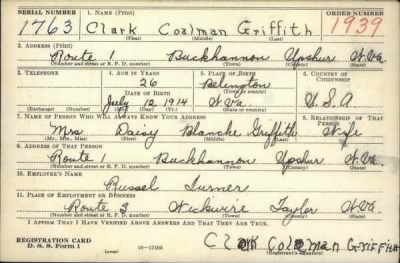 SERIAL NUMBER 1. NAME (Print) ORDER NUMBER
1763 Clark Coalman Griffith 1939
(First) (Middle) (Last)
2. ADDRESS (Print)
Route 1 Buckhannon Upshur W.Va.
(Number and street or R. F. D. number) (Town) (County) (State)
3. TELEPHONE 4. AGE IN YEARS 5. PLACE OF BIRTH 6. COUNTRY OF CITIZENSHIP
26 Belington
DATE OF BIRTH (Town or county)
July 12 1914 W.Va U.S.A
(Exchange) (Number) (Mo.) (Day) (Yr.) (State or country)
7. NAME OF PERSON WHO WILL ALWAYS KNOW YOUR ADDRESS 8. RELATIONSHIP OF THAT PERSON
Mrs Daisy Blanche Griffith Wife
(Mr., Mrs., Miss) (First) (Middle) (Last)
9. ADDRESS OF THAT PERSON
Route 1 Buckhannon Upshur W.Va.
(Number and street or R. F. D. number) (Town) (County) (State)
10. EMPLOYER'S NAME
Russel Turner
11. PLACE OF EMPLOYMENT OR BUSINESS
Route 3 Wickwire Taylor W.Va.
(Number and street or R. F. D. number) (Town) (County) (State)
I AFFIRM THAT I HAVE VERIFIED ABOVE ANSWERS AND THAT THEY ARE TRUE.
REGISTRATION CARD
D. S. S. Form 1 (over) 16—17105 Clark Coleman Griffith
(Registrant's signature)